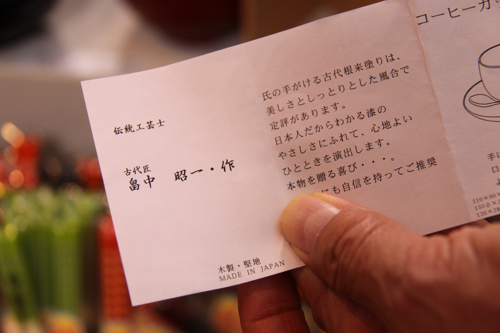 伝統工芸士
古代匠
畠中 昭一・作
木製・堅地
MADE IN JAPAN
氏の手がける古代根来塗りは、
美しさとしっとりとした風合で
定評があります。
日本人だからわかる漆の
やさしさにふれて、心地よい
ひとときを演出します。
本物を贈る喜び・・・。
にも自信を持ってご推奨
コーヒーカ